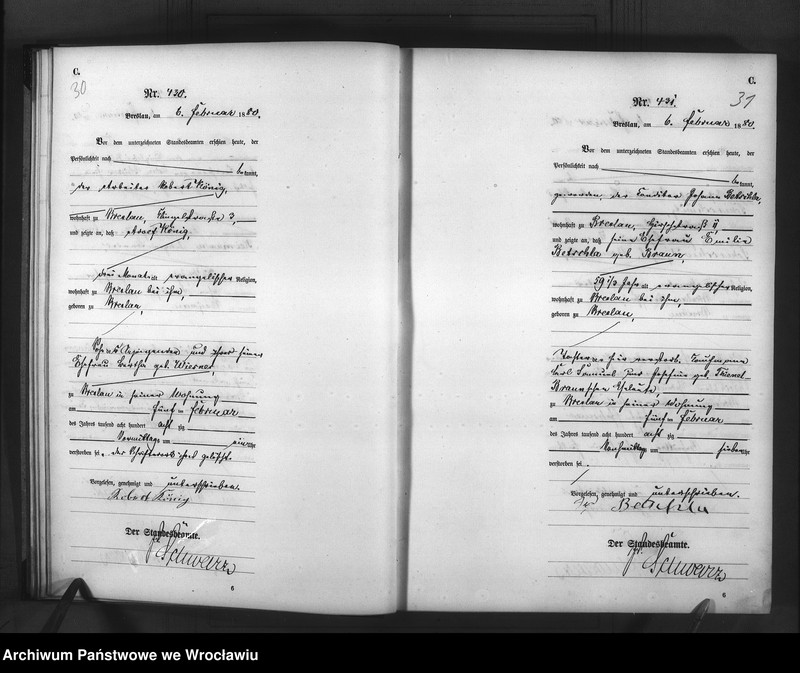 C.
30
Nr. 430.
Breslau, am 6. Februar 1880.
Vor dem unterzeichneten Standesbeamten erschien heute, der
Persönlichkeit nach
bekannt,
der Arbeiter Robert König,
wohnhaft zu Breslau, 3,
und zeigte an, daß König,
drei Monat alt evangelischer Religion,
wohnhaft zu Breslau bei ihm,
geboren zu Breslau,
Sohn des Anzeigenden und seiner
Ehefrau Bertha geb. Wiesner,
zu Breslau in seiner Wohnung
am fünften Februar
des Jahres tausend acht hundert achtzig
Vormittags um ein Uhr
verstorben sei.
Vorgelesen, genehmigt und unterschrieben.
Robert König
Der Standesbeamte.
Schwarz
6
C.
31
Nr. 431.
Breslau, am 6. Februar 1880.
Vor dem unterzeichneten Standesbeamten erschien heute, der
Persönlichkeit nach
bekannt,
geworden, der Conditor Johann
wohnhaft zu Breslau,
und zeigte an, daß seine Ehefrau Emilie
geb. Braun,
59 1/2 Jahr alt evangelischer Religion,
wohnhaft zu Breslau bei ihm,
geboren zu Breslau,
Tochter der verstorb.
Carl Samuel und geb.
Braun'schen Eheleute,
zu Breslau in seiner Wohnung
am fünften Februar
des Jahres tausend acht hundert achtzig
Nachmittags um sieben Uhr
verstorben sei.
Vorgelesen, genehmigt und unterschrieben.
Der Standesbeamte.
Schwarz
6
Archiwum Państwowe we Wrocławiu